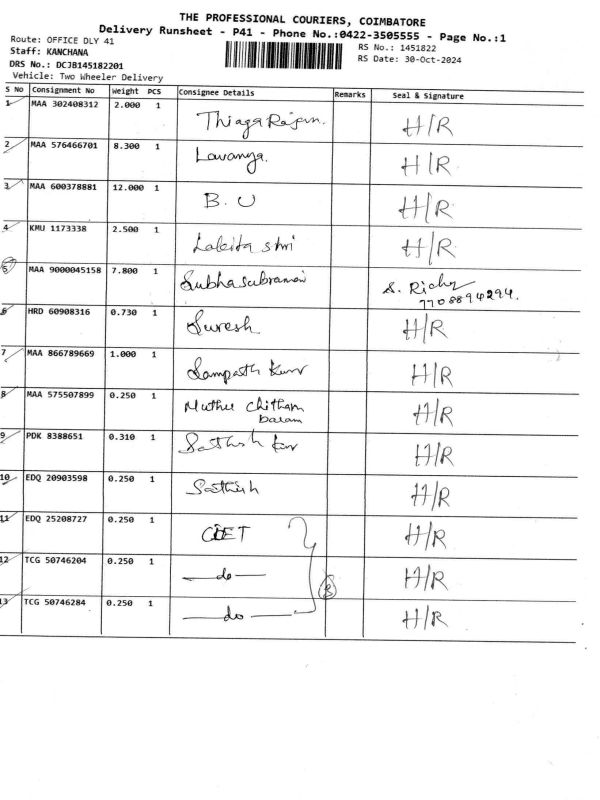 THE PROFESSIONAL COURIERS, COIMBATORE
Delivery Runsheet - P41 - Phone No.:0422-3505555 - Page No.:1
Route: OFFICE DLY 41
RS No.: 1451822
Staff: KANCHANA
RS Date: 30-Oct-2024
DRS No.: DCJB145182201
Vehicle: Two Wheeler Delivery
S No Consignment No Weight PCS Consignee Details Remarks Seal & Signature
1 MAA 302408312 2.000 1 Thiaga Rajan. H/R
2 MAA 576466701 8.300 1 Lavanya. H/R
3 MAA 600378881 12.000 1 B. U H/R
4 KMU 1173338 2.500 1 Lalita Shri H/R
5 MAA 9000045158 7.800 1 Subhasubramani S. Richy
7708894294.
6 HRD 60908316 0.730 1 Suresh H/R
7 MAA 866789669 1.000 1 Sampath Kumr H/R
8 MAA 575507899 0.250 1 Muthu Chitham H/R
baram
9 PDK 8388651 0.310 1 Sathish Kmr H/R
10 EDQ 20903598 0.250 1 Sathish H/R
11 EDQ 25208727 0.250 1 CIET H/R
12 TCG 50746204 0.250 1 —do— H/R
3
13 TCG 50746284 0.250 1 —do— H/R